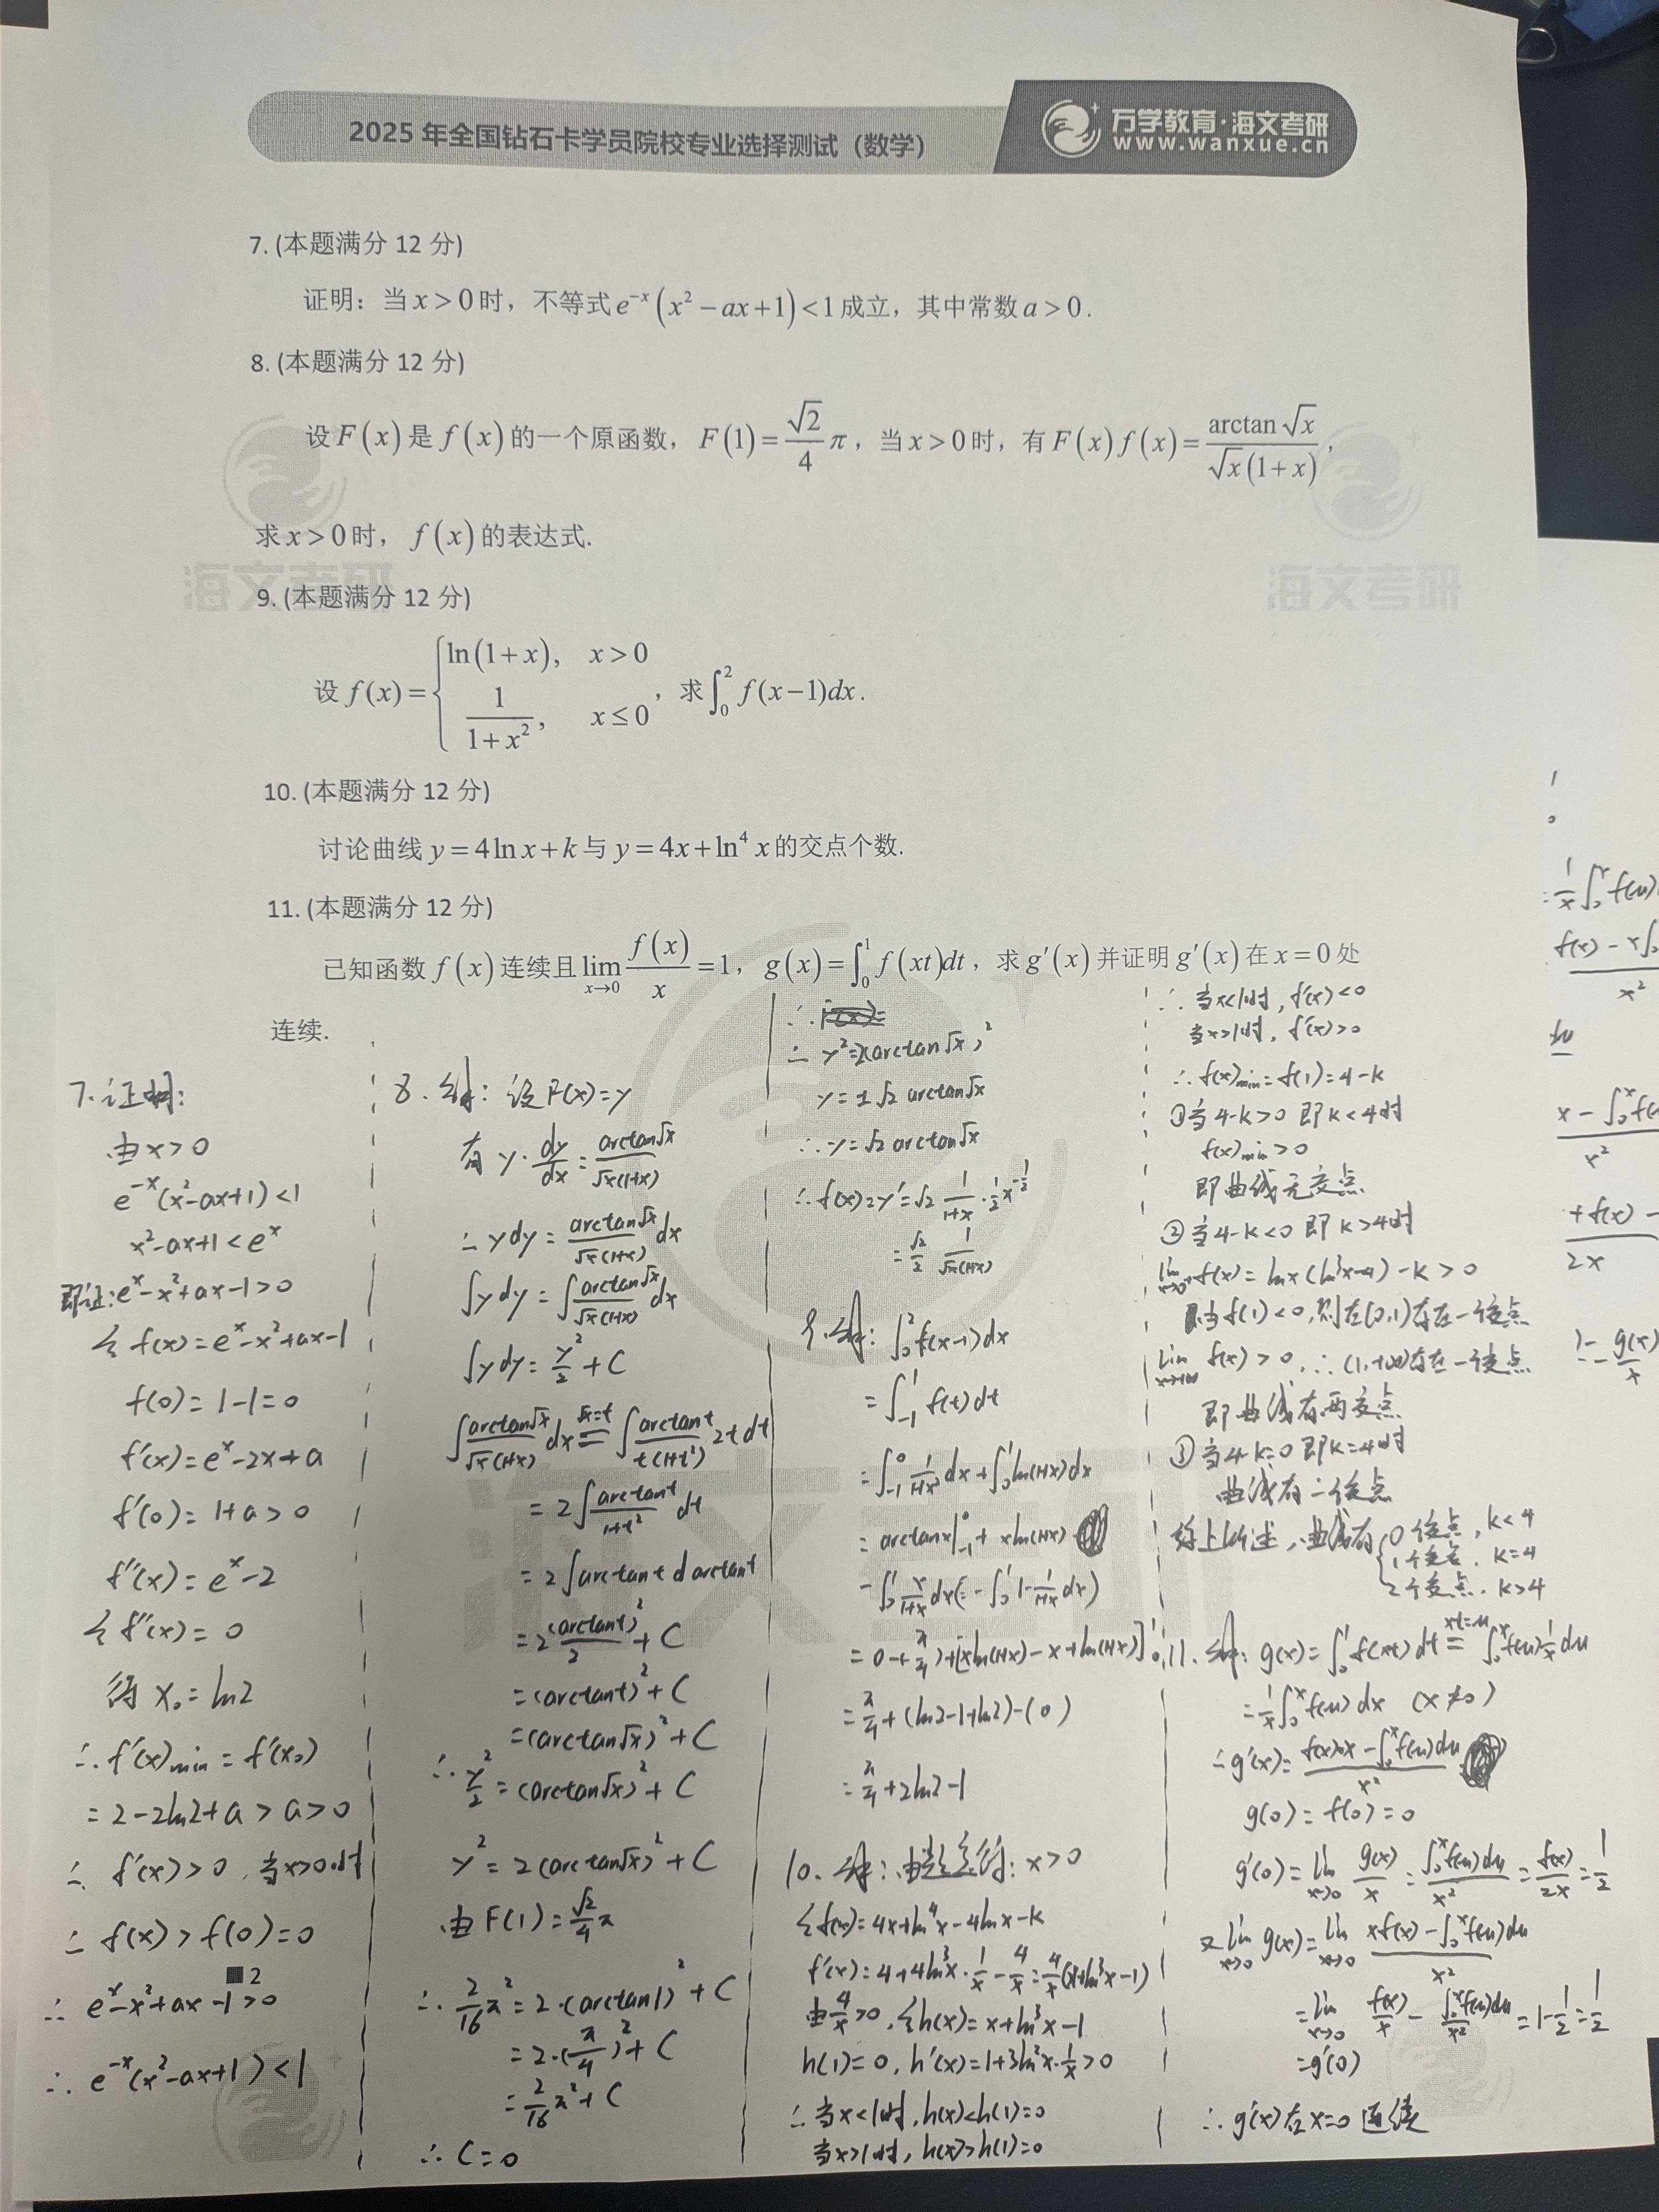 2025 年全国钻石卡学员院校专业选择测试（数学）
万学教育·海文考研
www.wanxue.cn
7. (本题满分 12 分)
证明：当 x > 0 时，不等式 e^{-x}(x² − ax + 1) < 1 成立，其中常数 a > 0 .
8. (本题满分 12 分)
设 F(x) 是 f(x) 的一个原函数，F(1) = √2/4 π，当 x > 0 时，有 F(x) f(x) = arctan√x / (√x(1+x)) ,
求 x > 0 时，f(x) 的表达式.
海文考研
海文考研
9. (本题满分 12 分)
设 f(x) = { ln(1+x), x > 0
1/(1+x²), x ≤ 0 ，求 ∫₀² f(x−1)dx .
10. (本题满分 12 分)
讨论曲线 y = 4ln x + k 与 y = 4x + ln⁴ x 的交点个数.
11. (本题满分 12 分)
已知函数 f(x) 连续且 lim_{x→0} f(x)/x = 1，g(x) = ∫₀¹ f(xt)dt，求 g′(x) 并证明 g′(x) 在 x = 0 处
连续.
7. 证明:
由 x > 0
e^{-x}(x²-ax+1) < 1
x²-ax+1 < e^x
即证: e^x-x²+ax-1>0
令 f(x) = e^x-x²+ax-1
f(0) = 1-1 = 0
f'(x) = e^x-2x+a
f'(0) = 1+a > 0
f''(x) = e^x-2
令 f''(x) = 0
得 x₀ = ln2
∴ f'(x)min = f'(x₀)
= 2-2ln2+a > a > 0
∴ f'(x) > 0, 当x>0时
∴ f(x) > f(0) = 0
2
∴ e^x-x²+ax-1>0
∴ e^{-x}(x²-ax+1) < 1
8. 解: 设 F(x) = y
有 y·dy/dx = arctan√x / (√x(1+x))
∴ ydy = arctan√x / (√x(1+x)) dx
∫ydy = ∫ arctan√x / (√x(1+x)) dx
∫ydy = y²/2 + C
∫ arctan√x / (√x(1+x)) dx =(√x=t) ∫ arctant / (t(1+t²)) 2t dt
= 2∫ arctant / (1+t²) dt
= 2∫ arctant d arctant
= 2 (arctant)²/2 + C
= (arctant)² + C
= (arctan√x)² + C
∴ y²/2 = (arctan√x)² + C
y² = 2(arctan√x)² + C
由 F(1) = √2/4 π
∴ 2/16 π² = 2·(arctan1)² + C
= 2·(π/4)² + C
= 2/16 π² + C
∴ C = 0
∴ y² = 2(arctan√x)²
y = ±√2 arctan√x
∴ y = √2 arctan√x
∴ f(x) = y' = √2 1/(1+x) · 1/2 x^{-1/2}
= √2/2 1/(√x(1+x))
9. 解: ∫₀² f(x-1)dx
= ∫₋₁¹ f(t)dt
= ∫₋₁⁰ 1/(1+x²) dx + ∫₀¹ ln(1+x)dx
= arctanx|₋₁⁰ + xln(1+x)
- ∫₀¹ x/(1+x) dx (= -∫₀¹ 1-1/(1+x) dx)
= 0-(-π/4)+[xln(1+x)-x+ln(1+x)]₀¹
= π/4 + (ln2-1+ln2)-(0)
= π/4 + 2ln2-1
10. 解: 由题意得: x>0
令 f(x) = 4x+ln⁴x-4lnx-k
f'(x) = 4+4ln³x·1/x - 4/x = 4/x(x+ln³x-1)
由 4/x>0, 令h(x) = x+ln³x-1
h(1) = 0, h'(x) = 1+3ln²x·1/x>0
∴ 当x<1时, h(x)<h(1)=0
当x>1时, h(x)>h(1)=0
∴ 当x<1时, f'(x)<0
当x>1时, f'(x)>0
∴ f(x)min = f(1) = 4-k
①当 4-k>0 即 k<4时
f(x)min>0
即曲线无交点
②当 4-k<0 即 k>4时
lim_{x→0⁺} f(x) = lnx(ln³x-4)-k>0
当 f(1)<0, 则在(0,1)存在一个交点
lim_{x→+∞} f(x) > 0, ∴ (1,+∞)存在一交点
即曲线有两交点
③当 4-k=0 即k=4时
曲线有一个交点
综上所述, 曲线有 { 0个交点, k<4
1个交点, k=4
2个交点, k>4
11. 解: g(x) = ∫₀¹ f(xt) dt =(xt=u) ∫₀ˣ f(u) 1/x du
= 1/x ∫₀ˣ f(u) dx (x≠0)
∴ g'(x) = (f(x)·x - ∫₀ˣ f(u)du) / x²
g(0) = f(0) = 0
g'(0) = lim_{x→0} g(x)/x = ∫₀ˣ f(u)du / x² = f(x)/2x = 1/2
又 lim_{x→0} g(x) = lim_{x→0} (xf(x) - ∫₀ˣ f(u)du) / x²
= lim_{x→0} f(x)/x - ∫₀ˣ f(u)du / x² = 1-1/2 = 1/2
= g'(0)
∴ g'(x)在x=0连续